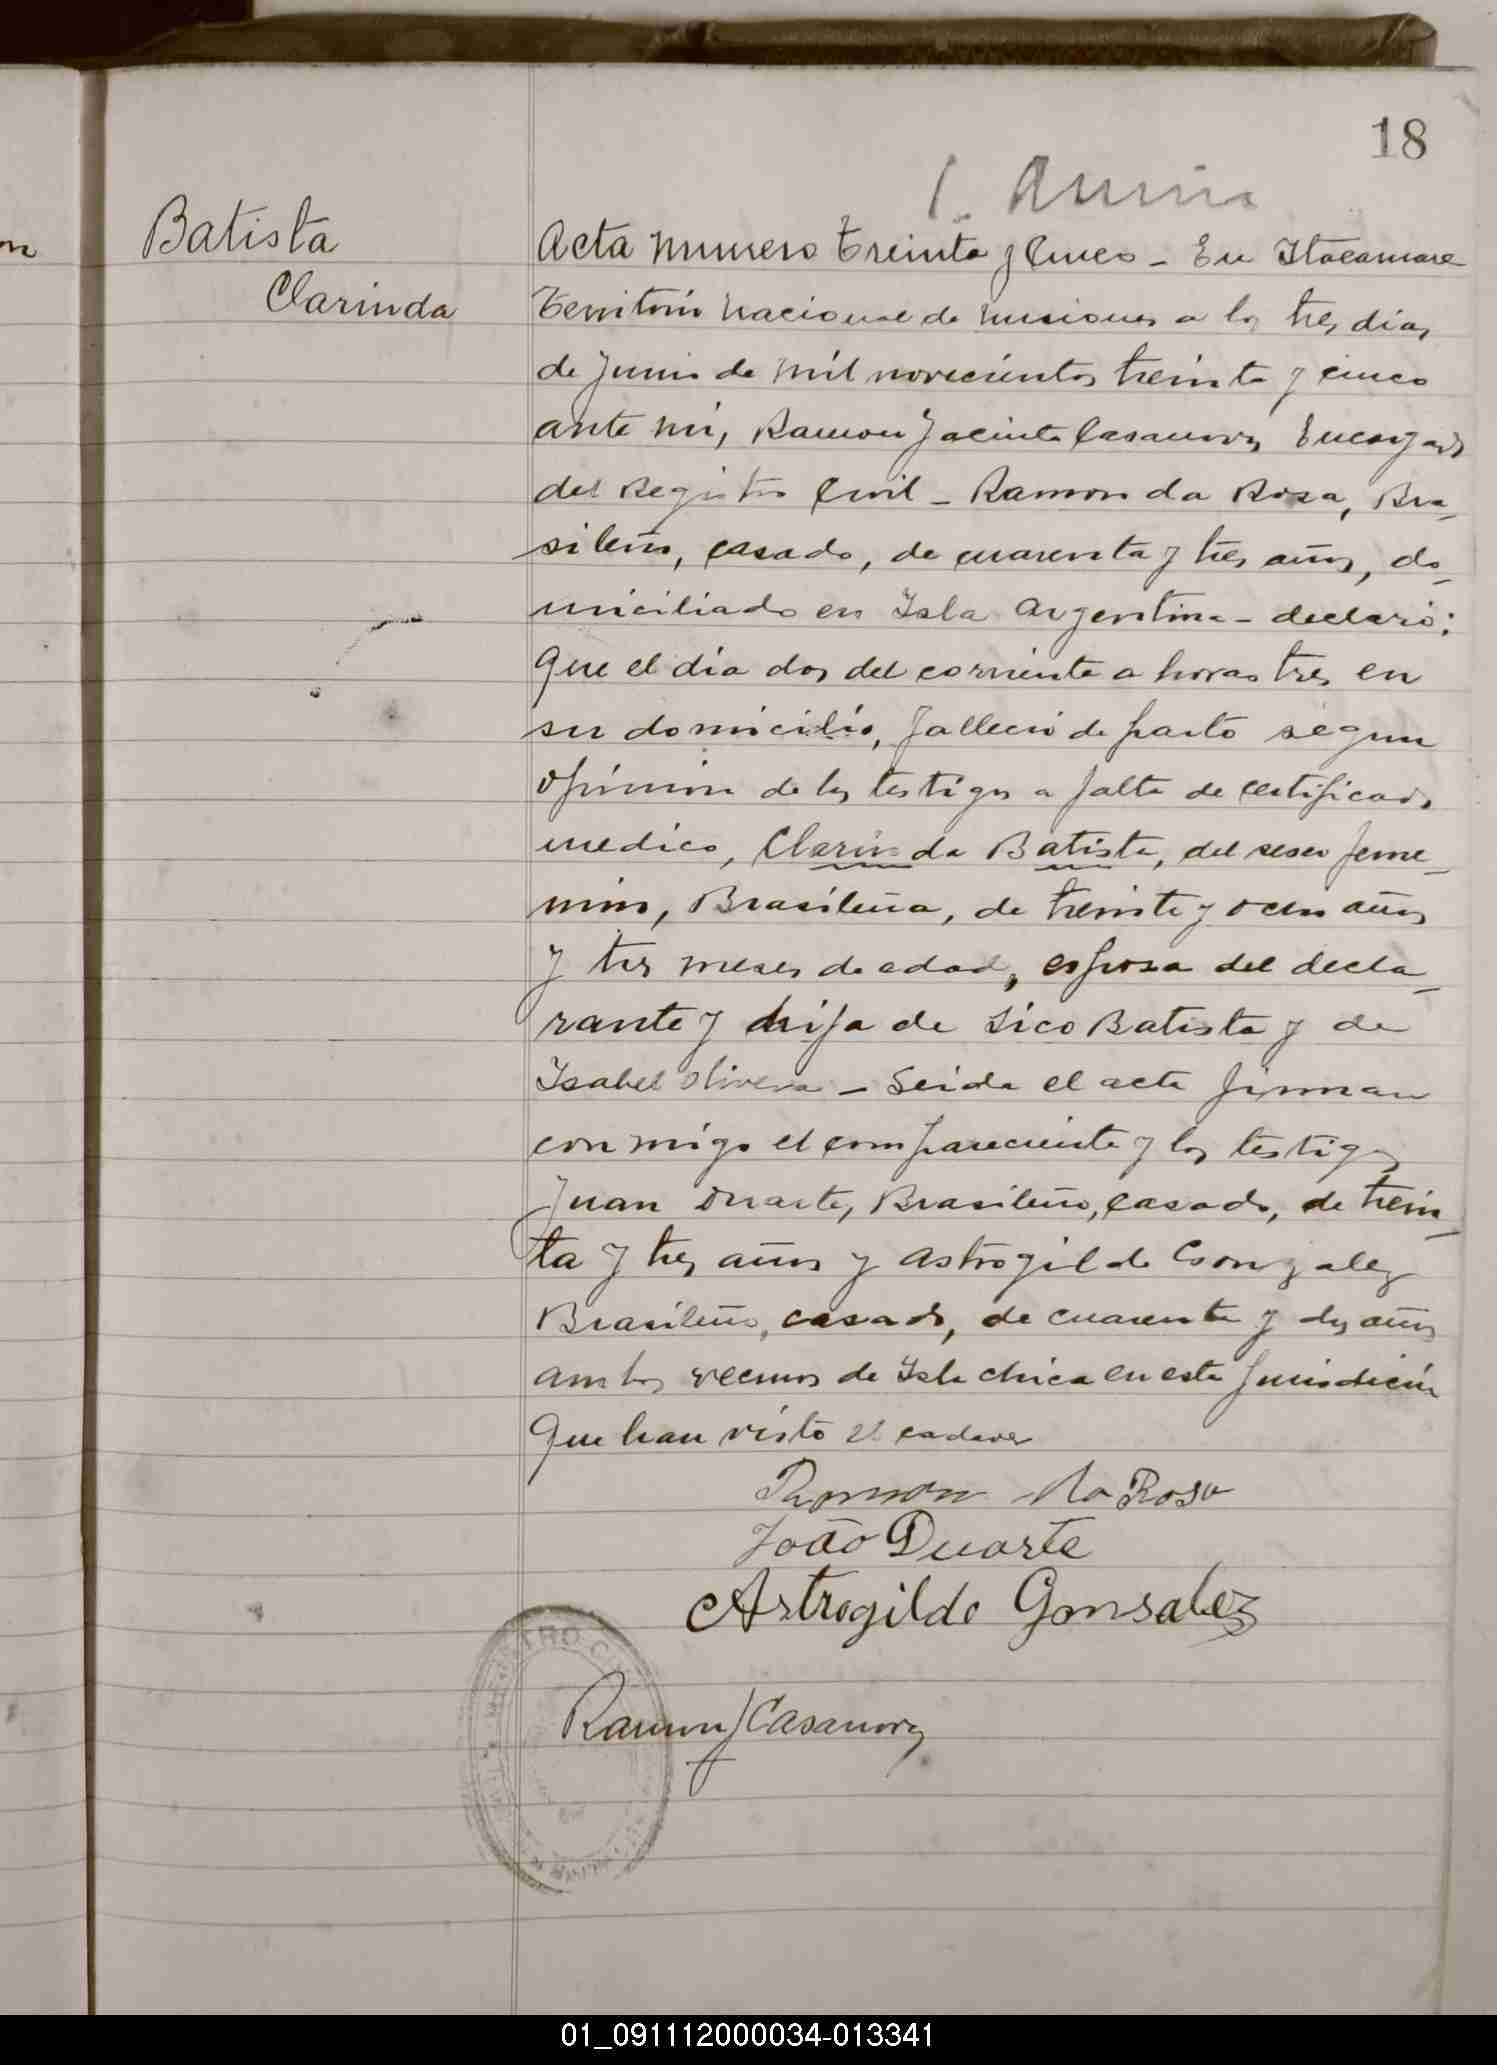 18
Batista
Clarinda
Acta numero treinta y Cinco - En Itacaruare
Territorio Nacional de Misiones a los tres dias
de Junio de mil novecientos treinta y cinco
ante mi, Ramon Jacinto Casanova Encargado
del Registro Civil - Ramon da Rosa, Bra-
sileño, casado, de cuarenta y tres años, do-
miciliado en Isla Argentina - declaró:
Que el dia dos del corriente a horas tres en
su domicilio, fallecio de parto segun
opinion de los testigos a falta de certificado
medico, Clarinda Batista, del sexo feme-
nino, Brasileña, de treinta y ocho años
y tres meses de edad, esposa del decla-
rante y hija de Lico Batista y de
Isabel Olivera - Leida el acta firman
conmigo el compareciente y los testigos
Juan Duarte, Brasileño, casado, de trein-
ta y tres años y Astrogildo Gonzalez
Brasileño, casado, de cuarenta y dos años
ambos vecinos de Isla chica en esta Jurisdicion
Que han visto el cadaver
Ramon da Rosa
João Duarte
Astrogildo Gonsalez
Ramon J Casanova
REGISTRO CIVIL
01_091112000034-013341